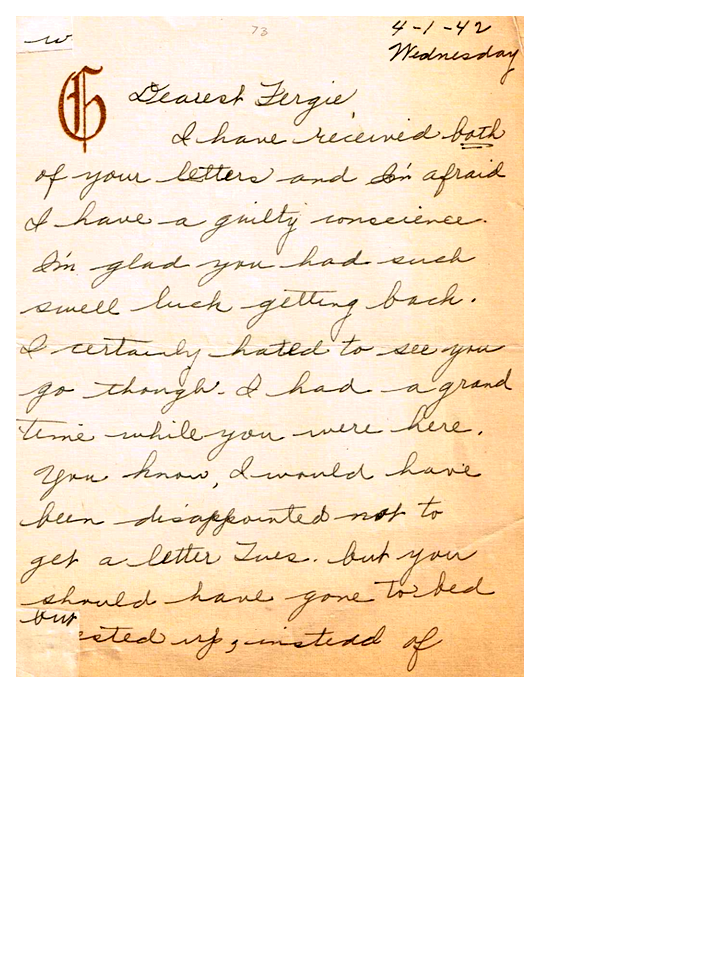 73
4-1-42
Wednesday
G
Dearest Fergie,
I have received both
of your letters and I'm afraid
I have a guilty conscience.
I'm glad you had such
swell luck getting back.
I certainly hated to see you
go though. I had a grand
time while you were here.
You know, I would have
been disappointed not to
get a letter Tues. but you
should have gone to bed
but
ested up, instead of